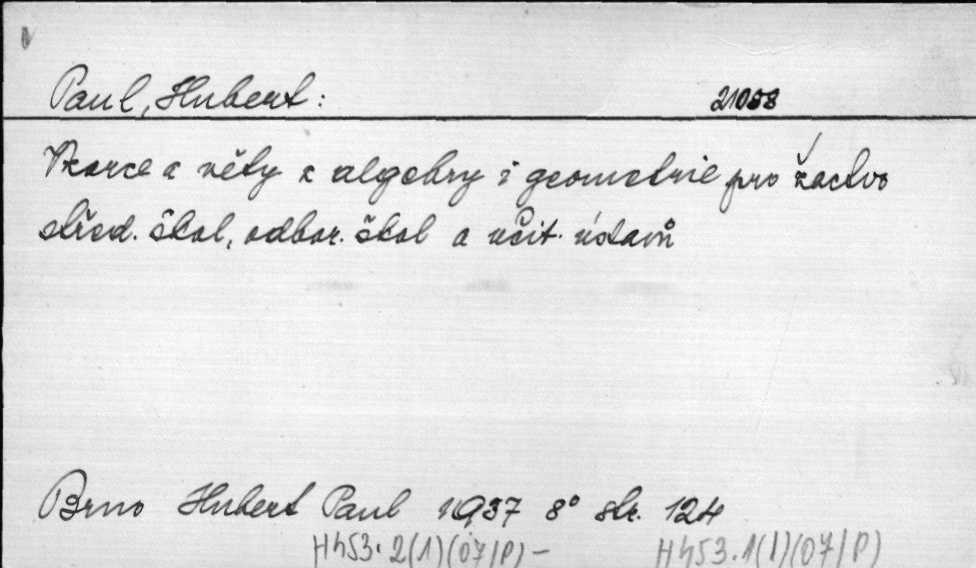 Paul, Hubert: 21058
Vzorce a věty z algebry i geometrie pro žactvo
střed. škol, odbor. škol a učit. ústavů
Brno Hubert Paul 1937 8° str. 124
H453.2(1)(07/P) - H453.1(1)(07/P)